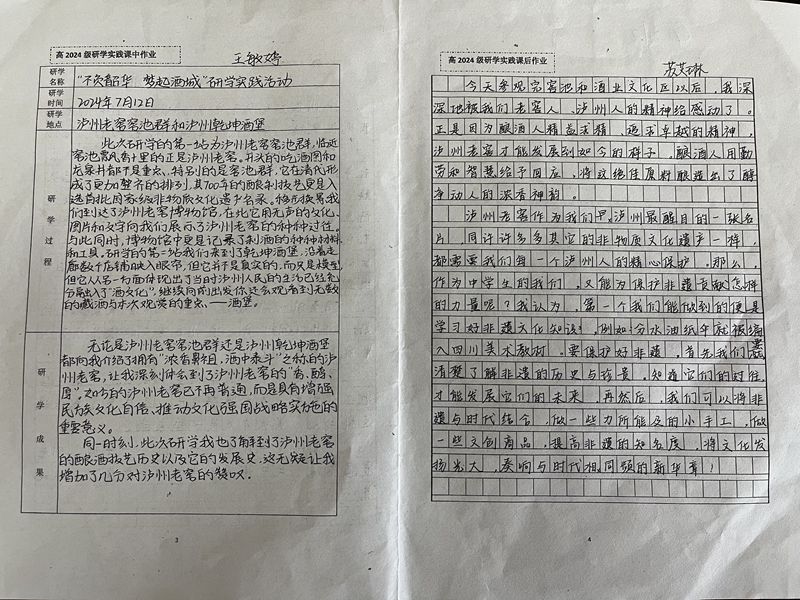 高 2024 级研学实践课中作业
王敏婷
研学名称
"不负韶华 梦起酒城"研学实践活动
研学时间
2024年7月12日
研学地点
泸州老窖窖池群和泸州乾坤酒堡
研学过程
此次研学的第一站为泸州老窖窖池群,临近
窖池震风香十里的正是泸州老窖。开头的吃酒图和
龙泉井都于是重点、特别的是窖池群,它在清代形
成了更加整齐的排列,其700年的酿制技艺更是入
选首批国家级非物质文化遗产名录。移形换景我
们到达了泸州老窖博物馆,在此它用无声的文化、
图片和文字向我们展示了泸州老窖的种种过往。
与此同时,博物馆中更是记录了制酒的种种材料
和工具。研学的第二站我们来到了乾坤酒堡,沿着走
廊数个店铺映入眼帘,但它并不是真实的,而只是模型
但它从另一方面体现出了当时泸州人民的生活已经充
分融入了"酒文化"。继续向前出发你还会观看到无数
的藏酒与本次观赏的重点——酒堡。
研学成果
无论是泸州老窖窖池群还是泸州乾坤酒堡
都向我介绍了拥有"浓香鼻祖,酒中泰斗"之称的泸
州老窖,让我深刻体会到了泸州老窖的"香、醇、
厚",如今的泸州老窖已不再普通,而是具有增强
民族文化自信、推动文化强国战略实施的
重要意义。
同一时刻,此次研学我也了解到了泸州老窖
的酿酒技艺历史以及它的发展史,这无疑让我
增加了几分对泸州老窖的赞叹。
3
高 2024 级研学实践课后作业
苏艾琳
今天参观完窖池和酒业文化区以后,我深
深地被我们老窖人、泸州人的精神给感动了。
正是因为酿酒人精益求精、追求卓越的精神,
泸州老窖才能发展到如今的样子,酿酒人用勤
劳和智慧给予回应,将这绝佳原料酿造出了醉
净动人的浓香神韵。
泸州老窖作为我们泸州最醒目的一张名
片,同许许多多其它的非物质文化遗产一样,
都需要我们每一个泸州人的精心保护。那么,
作为中学生的我们,又能为保护非遗贡献怎样
的力量呢?我认为,第一个我们能做到的便是
学习好非遗文化知识,例如分水油纸伞就被编
入四川美术教材。要保护好非遗,首先我们需要
清楚了解非遗的历史与背景,知道它们的过往,
才能发展它们的未来,再然后,我们可以将非
遗与时代结合,做一些力所能及的小手工,做
一些文创商品,提高非遗的知名度,将文化发
扬光大,奏响与时代相同频的新华章!
4